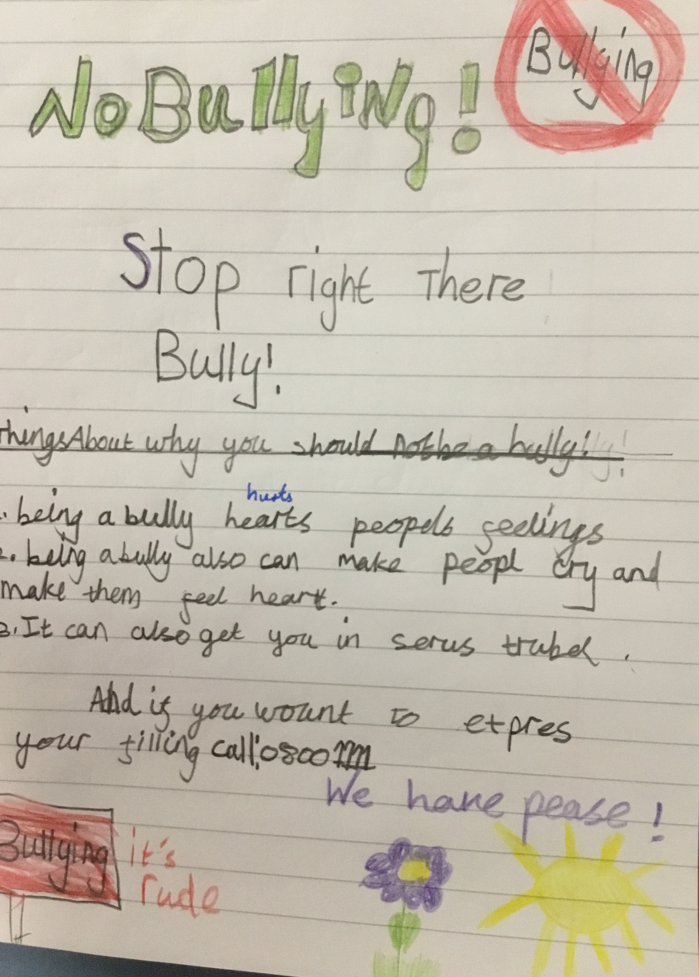 No Bullying!
Bullying
Stop right There
Bully!
ThingsAbout why you should not be a bully!
hurts
1. being a bully hearts peopels feelings
2. being a bully also can make peopl cry and
make them feel heart.
3. It can also get you in serus trubel.
And if you wount to expres
your filling call:0800
We have pease!
Bullying
it's
rude